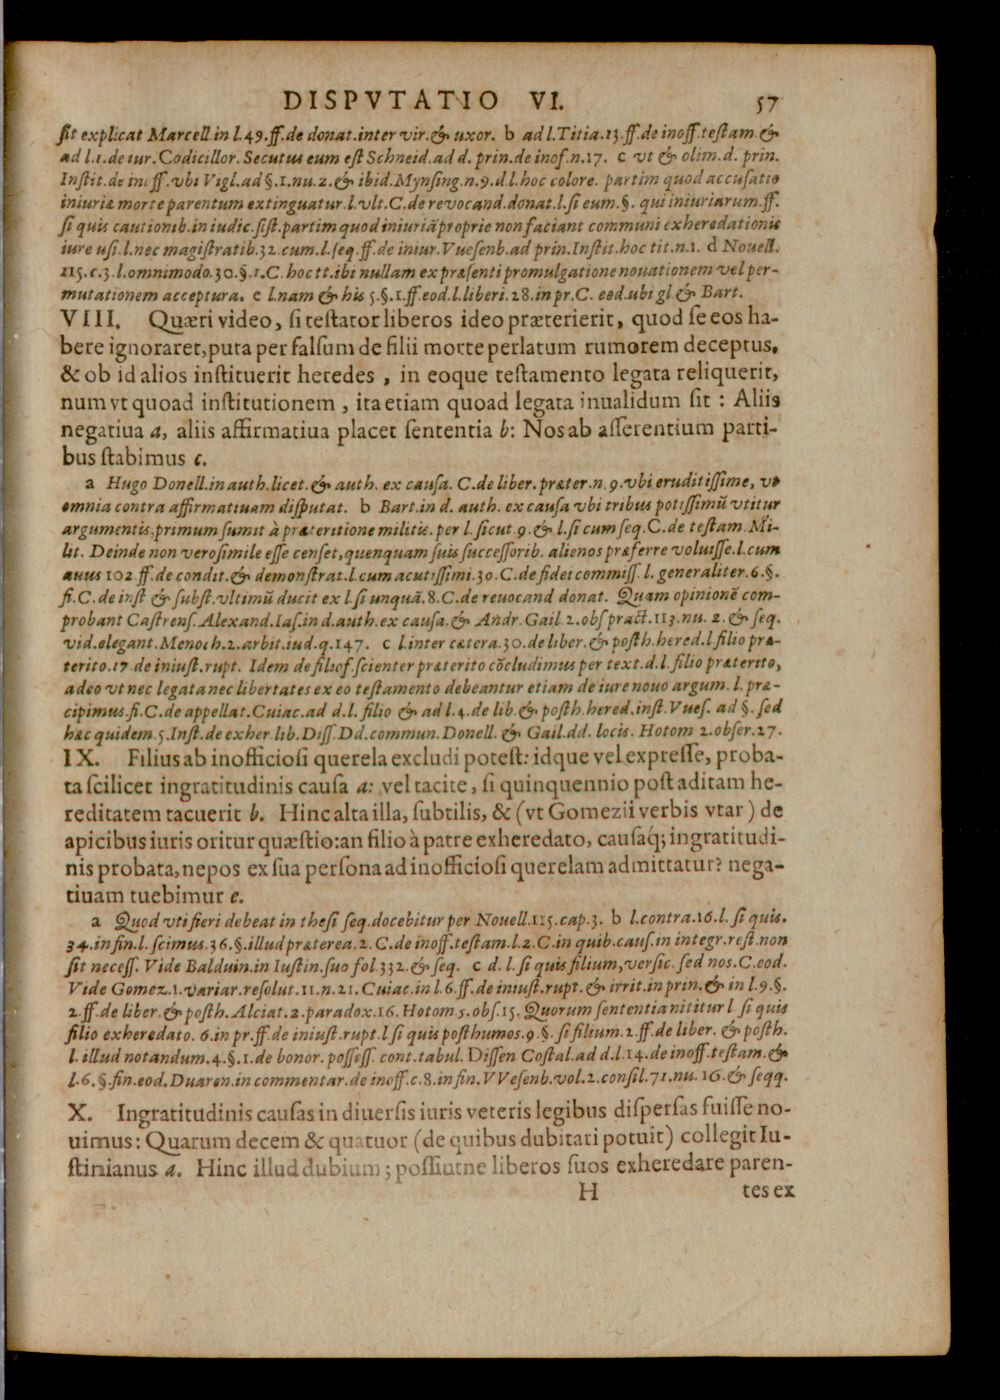 DISPVTATIO VI. 57
sit explicat Marcell in l.49.ff.de donat.inter vir.& uxor. b ad l.Titia.13.ff.de inoff.testam.&
ad l.1.de iur.Codicillor. Secutus eum est Schneid.ad d. prin.de inof.n.17. c vt & olim.d. prin.
Instit.de inoff.vbi Vigl.ad §.1.nu.2.& ibid.Mynsing.n.9.d.l.hoc colore. partim quod accusatio
iniuriæ morte parentum extinguatur.l.vlt.C.de revocand.donat.l.si eum.§. qui iniuriarum.ff.
si quis cautionib.in iudic.sist.partim quod iniuriã proprie non faciant communi exheredationis
iure usi.l.nec magistratib.32.cum.l.seq.ff.de iniur.Vuesenb.ad prin.Instit.hoc tit.n.1. d Nouell.
115.c.3.l.omnimodo.30.§.1.C.hoc tt.ibi nullam ex præsenti promulgatione nouationem vel per-
mutationem acceptura. e l.nam & his 5.§.1.ff.eod.l.liberi.28.in pr.C. eod.ubi gl & Bart.
VIII. Quæri video, si testator liberos ideo præterierit, quod se eos ha-
bere ignoraret, puta per falsum de filii morte perlatum rumorem deceptus,
& ob id alios instituerit heredes, in eoque testamento legata reliquerit,
num vt quoad institutionem, ita etiam quoad legata inualidum sit: Aliis
negatiua a, aliis affirmatiua placet sententia b: Nos ab asserentium parti-
bus stabimus c.
a Hugo Donell.in auth.licet.& auth. ex causa. C.de liber.præter.n.9.vbi eruditissime, vt
omnia contra affirmatiuam disputat. b Bart.in d. auth. ex causa vbi tribus potissimũ vtitur
argumentis,primum sumit à præteritione militis.per l.sicut.9.& l.si cum seq.C.de testam.Mi-
lit. Deinde non verosimile esse censet,quenquam suis successorib. alienos præferre voluisse.l.cum
auus 102.ff.de condit.& demonstrat.l.cum acutissimi.30.C.de fidei commiss.l.generaliter.6.§.
fi.C.de inst & subst.vltimũ ducit ex l.si unquã.8.C.de reuocand donat. Quam opinionẽ com-
probant Castrens.Alexand.Ias.in d.auth.ex causa.& Andr.Gail 2.obs pract.113.nu. 2. & seq.
vid.elegant.Menoch.2.arbit.iud.q.147. c l.inter cætera.30.de liber.& posth.hered.l filio præ-
terito.17 de iniust.rupt. Idem de filiof.scienter præterito cõcludimus per text.d.l.filio præterito,
adeo vt nec legata nec libertates ex eo testamento debeantur etiam de iure nouo argum.l.præ-
cipimus.fi.C.de appellat.Cuiac.ad d.l. filio & ad l.4.de lib.& posth.hered.inst.Vues. ad §. sed
hæc quidem.5.Inst.de exher.lib.Diss.Dd.commun.Donell. & Gail.dd. locis. Hotom 2.obser.27.
IX. Filius ab inofficiosi querela excludi potest: idque vel expresse, proba-
ta scilicet ingratitudinis causa a: vel tacite, si quinquennio post aditam he-
reditatem tacuerit b. Hinc alta illa, subtilis, & (vt Gomezii verbis vtar) de
apicibus iuris oritur quæstio: an filio à patre exheredato, causaq; ingratitudi-
nis probata, nepos ex sua persona ad inofficiosi querelam admittatur? nega-
tiuam tuebimur e.
a Quod vti fieri debeat in thesi seq.docebitur per Nouell.115.cap.3. b l.contra.16.l. si quis.
34.in fin.l.scimus.36.§.illud præterea.2.C.de inoff.testam.l.2.C.in quib.caus.in integr.rest.non
sit necess. Vide Balduin.in Iustin.suo fol.332.& seq. c d. l. si quis filium, versic.sed nos.C.eod.
Vide Gomez.1.variar.resolut.11.n.21.Cuiac.in l.6.ff.de iniust.rupt.& irrit.in prin.& in l.9.§.
2.ff.de liber.& posth.Alciat.2.paradox.16.Hotom.5.obs.15. Quorum sententia nititur l si quis
filio exheredato. 6.in pr.ff.de iniust.rupt.l.si quis posthumos.9.§. si filium.2.ff.de liber. & posth.
l.illud notandum.4.§.1.de bonor.possess.cont.tabul.Dissen Costal.ad d.l.14.de inoff.testam.&
l.6.§.fin.eod.Duaren.in commentar.de inoff.c.8.in fin.VVesenb.vol.2.consil.71.nu.16.& seqq.
X. Ingratitudinis causas in diuersis iuris veteris legibus dispersas fuisse no-
uimus: Quarum decem & quatuor (de quibus dubitari potuit) collegit Iu-
stinianus a. Hinc illud dubium; possiutne liberos suos exheredare paren-
H tes ex